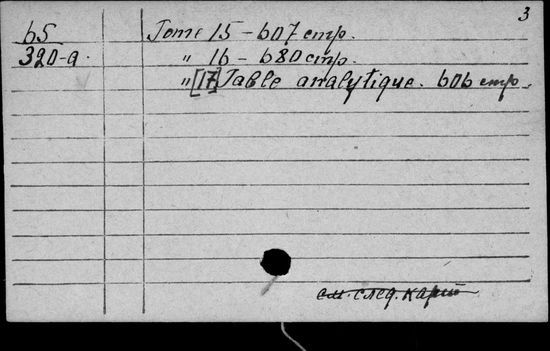 3
65
320-а.
Tome 15 - 607 стр.
" 16 - 680 стр.
" [17] Table analytique. 606 стр.
см. след. карт